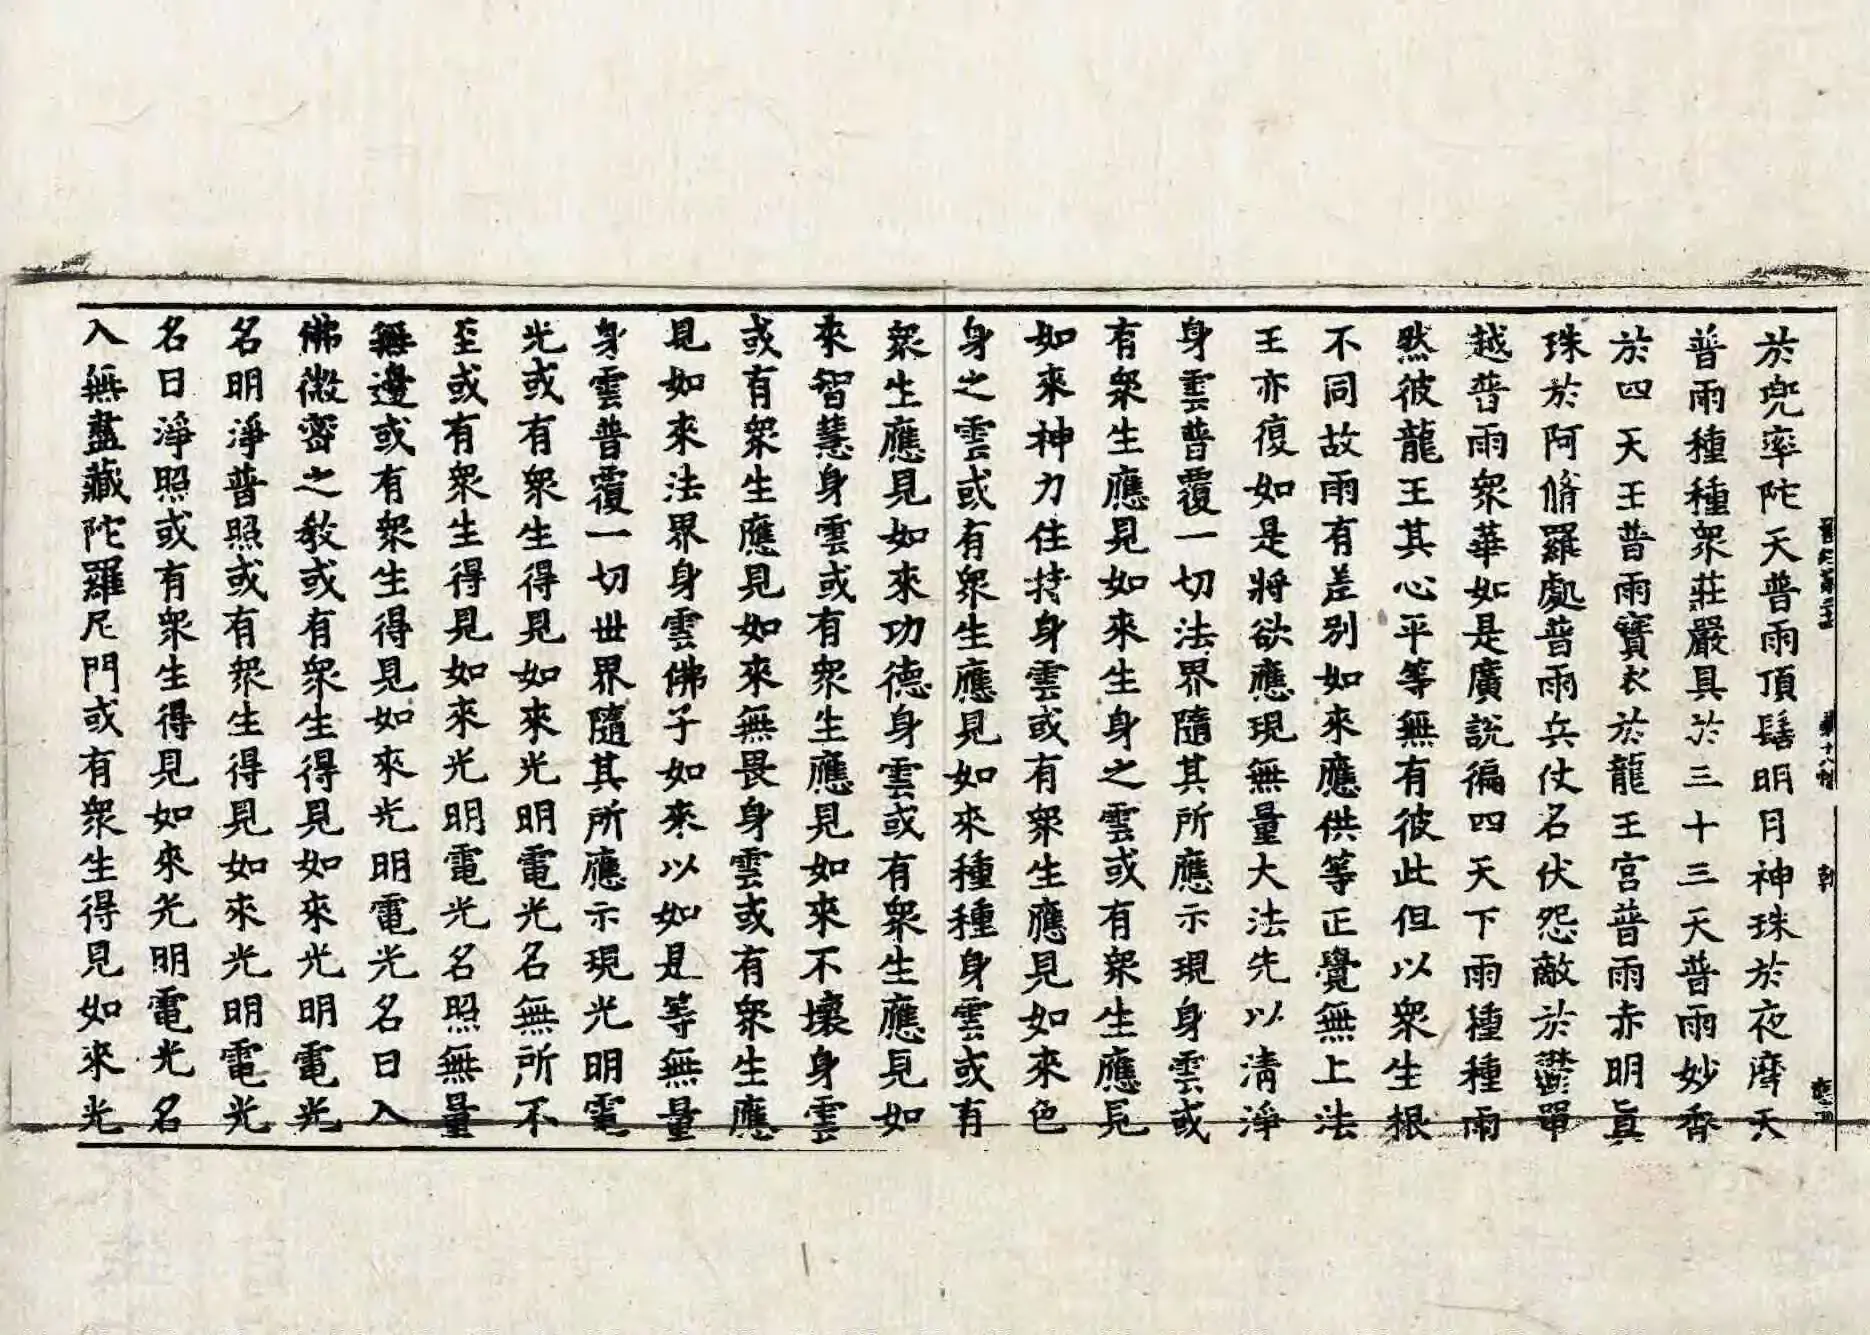 於兜率陀天普雨頂髻明月神珠於夜摩天
普雨種種衆莊嚴具於三十三天普雨妙香
於四天王普雨寶衣於龍王宮普雨赤明真
珠於阿脩羅處普雨兵仗名伏怨敵於鬱單
越普雨衆華如是廣說徧四天下雨種種雨
然彼龍王其心平等無有彼此但以衆生根
不同故雨有差別如來應供等正覺無上法
王亦復如是將欲應現無量大法先以清淨
身雲普覆一切法界隨其所應示現身雲或
有衆生應見如來生身之雲或有衆生應見
如來神力住持身雲或有衆生應見如來色
身之雲或有衆生應見如來種種身雲或有
衆生應見如來功德身雲或有衆生應見如
來智慧身雲或有衆生應見如來不壞身雲
或有衆生應見如來無畏身雲或有衆生應
見如來法界身雲佛子如來以如是等無量
身雲普覆一切世界隨其所應示現光明電
光或有衆生得見如來光明電光名無所不
至或有衆生得見如來光明電光名照無量
無邊或有衆生得見如來光明電光名日入
佛微密之教或有衆生得見如來光明電光
名明淨普照或有衆生得見如來光明電光
名日淨照或有衆生得見如來光明電光名
入無盡藏陀羅尼門或有衆生得見如來光